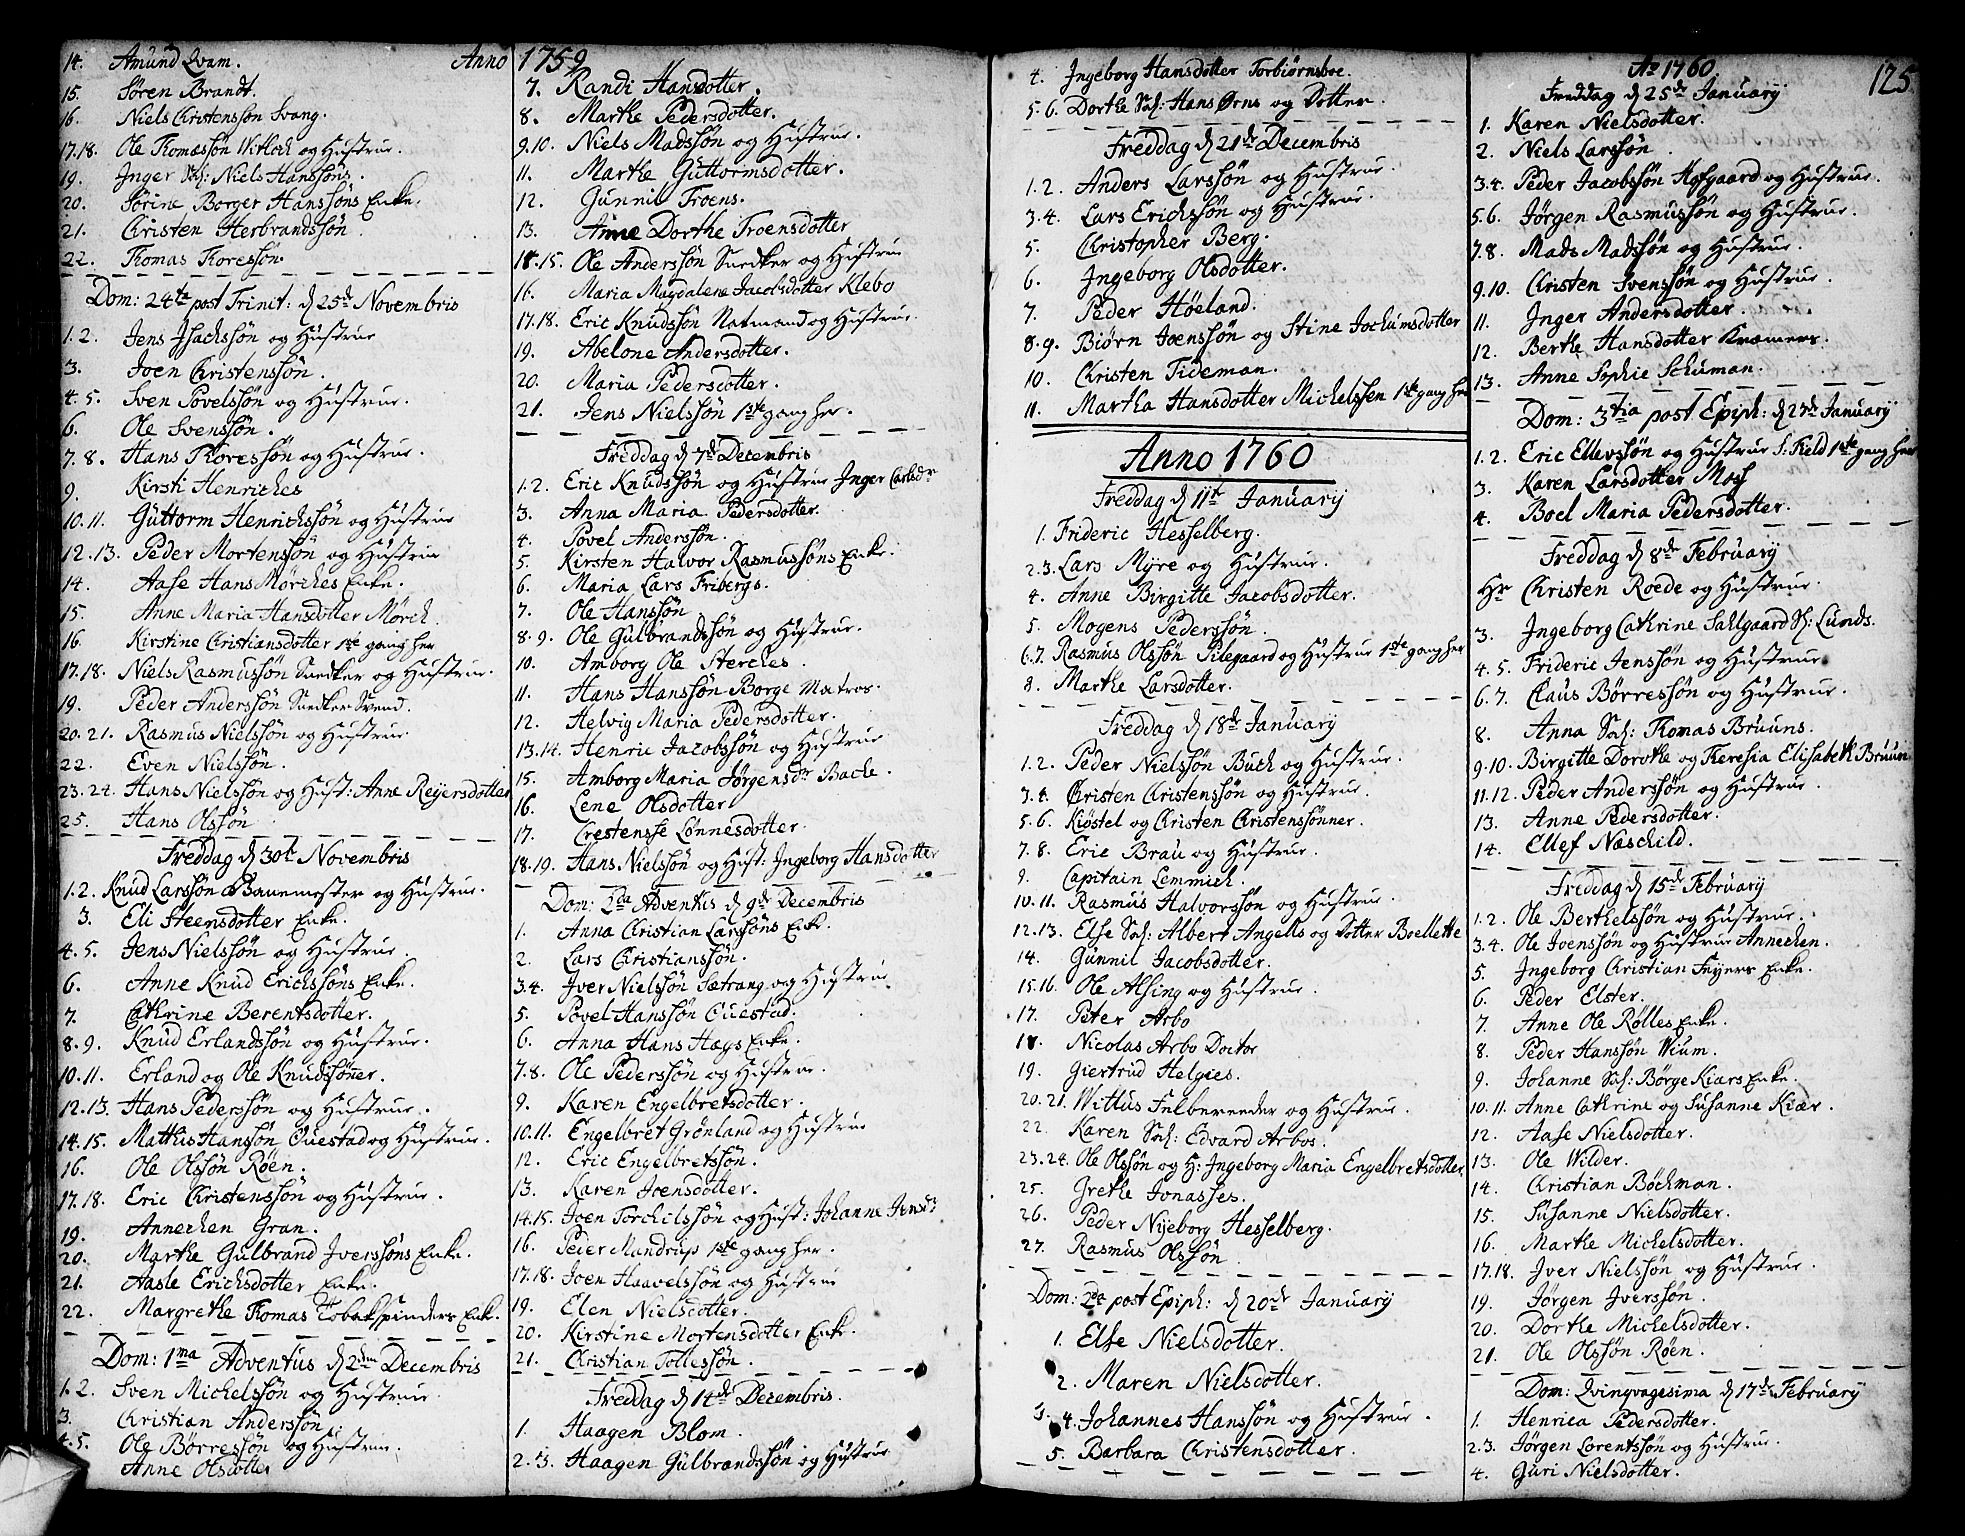 Anno 1759
14. Amund Qvam.
15. Søren Brandt.
16. Niels Christenssøn Svang.
17.18. Ole Thomæssøn Witloch og Hustrue.
19. Inger Sal: Niels Hanssøns.
20. Sørine Borger Hanssøns Enke.
21. Christen Herbrandssøn.
22. Thomas Thoressøn.
Dom: 24te post Trinit: d 25de Novembris
1.2. Jens Isachssøn og Hustrue
3. Joen Christenssøn.
4.5. Sven Povelssøn og Hustrue.
6. Ole Svenssøn.
7.8. Hans Thoressøn og Hustrue.
9. Kirsti Henriches
10.11. Guttorm Henrichssøn og Hustrue
12.13. Peder Mortenssøn og Hustrue
14. Aase Hans Mørches Enke.
15. Anne Maria Hansdotter Mørch.
16. Kirstine Christiansdotter 1ste gang her
17.18. Niels Rasmussøn Snedker og Hustrue.
19. Peder Anderssøn Snedker Svend.
20.21. Rasmus Nielssøn og Hustrue
22. Even Nielssøn.
23.24. Hans Nielssøn og Hust: Anne Reijersdotter
25. Hans Olssøn
Freddag d 30te Novembris
1.2. Knud Larssøn Banemester og Hustrue.
3. Eli Steensdotter Enke.
4.5. Jens Nielssøn og Hustrue.
6. Anne Knud Erichssøns Enke.
7. Cathrine Berentsdotter.
8.9. Knud Erlandssøn og Hustrue.
10.11. Erland og Ole Knudssønner.
12.13. Hans Pederssøn og Hustrue.
14.15. Mathis Hanssøn Ouestad og Hustrue.
16. Ole Olssøn Røen.
17.18. Eric Christenssøn og Hustrue.
19. Annechen Gran.
20. Marthe Gulbrand Iverssøns Enke.
21. Aasle Erichsdotter Enke.
22. Margrethe Thomas Tobakspinders Enke.
Dom: 1ma Adventus d 2den Decembris
1.2. Sven Michelssøn og Hustrue.
3. Christian Anderssøn
4.5. Ole Børressøn og Hustrue.
Anne Olsdotter
7. Randi Hansdotter.
8. Marthe Pedersdotter.
9.10. Niels Madssøn og Hustrue.
11. Marthe Guttormsdotter.
12. Gunnil Troens.
13. Anne Dorthe Troensdotter
14.15. Ole Anderssøn Snedker og Hustrue
16. Maria Magdalene Jacobsdotter Klebo
17.18. Eric Knudssøn Natmand og Hustrue.
19. Abelone Andersdotter.
20. Maria Pedersdotter.
21. Jens Nielssøn 1ste gang her.
Freddag d 7de Decembris
1.2. Eric Knudssøn og Hustrue Inger Carlsdr
3. Anna Maria Pedersdotter.
4. Povel Anderssøn.
5. Kirsten Halvor Rasmussøns Enke.
6. Maria Lars Fribergs.
7. Ole Hanssøn
8.9. Ole Gulbrandssøn og Hustrue.
10. Amborg Ole Sterches.
11. Hans Hanssøn Borge Matros.
12. Helvig Maria Pedersdotter.
13.14. Henric Jacobssøn og Hustrue
15. Amborg Maria Jørgensdr Bache.
16. Lene Olsdotter
17. Crestensse Lønnesdotter.
18.19. Hans Nielssøn og Hust: Ingeborg Hansdotter
Dom: 2da Adventus d 9de Decembris
1. Anna Christian Larssøns Enk.
2. Lars Christianssøn.
3.4. Iver Nielssøn Sætrang og Hustrue
5. Povel Hanssøn Ouestad.
6. Anna Hans Hags Enke.
7.8. Ole Pederssøn og Hustrue.
9. Karen Engelbretsdotter.
10.11. Engelbret Grønland og Hustrue
12. Eric Engelbretssøn.
13. Karen Joensdotter.
14.15. Joen Torchilssøn og Hust: Johanne Jensdr
16. Peder Mandrup 1ste gang her.
17.18. Joen Haavelssøn og Hustrue
19. Elen Nielsdotter.
20. Kirstine Mortensdotter Enke.
21. Christian Tollessøn.
Freddag d 14de Decembris.
1. Haagen Blom.
2.3. Haagen Gulbrandssøn og Hustrue
4. Ingeborg Hansdotter Torbiørnsboe.
5.6. Dorthe Sal: Hans Ørns og Dotter.
Freddag d 21de Decembris
1.2. Anders Larssøn og Hustrue.
3.4. Lars Erichssøn og Hustrue.
5. Christopher Berg.
6. Ingeborg Olsdotter.
7. Peder Høeland.
8.9. Biørn Joenssøn og Stine Jochumsdotter
10. Christen Tideman.
11. Martha Hansdotter Michelssen 1ste gang her
Anno 1760
Freddag d 11te January
1. Frideric Hesselberg.
2.3. Lars Myre og Hustrue.
4. Anne Birgitte Jacobsdotter.
5. Mogens Pederssøn.
6.7. Rasmus Olssøn Pilegaard og Hustrue 1ste gang her
8. Marthe Larsdotter.
Freddag d 18de January
1.2. Peder Nielssøn Buch og Hustrue.
3.4. Christen Christenssøn og Hustrue.
5.6. Kiøstel og Christen Christenssønner.
7.8. Eric Brau og Hustrue.
9. Capitain Lemmich.
10.11. Rasmus Halvorssøn og Hustrue.
12.13. Else Sal: Albert Angells og Dotter Boellette
14. Gunnil Jacobsdotter.
15.16. Ole Alsing og Hustrue.
17. Peter Arbo
18. Nicolas Arbo Doctor
19. Giertrud Helgies.
20.21. Wittus Felbereeder og Hustrue.
22. Karen Sal: Edvard Arbos.
23.24. Ole Olssøn og H: Ingeborg Maria Engelbretsdotter
25. Grethe Jonasses.
26. Peder Nijeborg Hesselberg.
27. Rasmus Olssøn
Dom: 2da post Epiph: d 20de January
1. Else Nielsdotter.
2. Maren Nielsdotter.
3.4. Johannes Hanssøn og Hustrue.
5. Barbara Christensdotter.
Ao 1760
125
Freddag d 25de January
1. Karen Nielsdotter.
2. Niels Larssøn.
3.4. Peder Jacobssøn Hofgaard og Hustrue.
5.6. Jørgen Rasmussøn og Hustrue.
7.8. Mads Madssøn og Hustrue.
9.10. Christen Svenssøn og Hustrue.
11. Inger Andersdotter.
12. Berthe Hansdotter Kræmers.
13. Anne Sophie Schuman.
Dom: 3tia post Epiph: d 27de January
1.2. Eric Ellevssøn og Hustrue S: Field 1ste gang her
3. Karen Larsdotter Moss
4. Boel Maria Pedersdotter.
Freddag d 8de February
Hr Christen Roede og Hustrue.
3. Ingeborg Cathrine Sahlgaard Sl: Lunds.
4.5. Frideric Jenssøn og Hustrue
6.7. Claus Børressøn og Hustrue.
8. Anna Sal: Thomas Bruuns.
9.10. Birgitte Dorothe og Theresia Elisabeth Bruun
11.12. Peder Anderssøn og Hustrue.
13. Anne Pedersdotter.
14. Ellef Næschild.
Freddag d 15de February
1.2. Ole Berthelssøn og Hustrue.
3.4. Ole Joenssøn og Hustrue Annechen.
5. Ingeborg Christian Feyers Enke.
6. Peder Elster.
7. Anne Ole Rølles Enke.
8. Peder Hanssøn Wium.
9. Johanne Sal: Børge Kiærs Enke.
10.11. Anne Cathrine og Susanne Kiær.
12. Aase Nielsdotter.
13. Ole Wilder.
14. Christian Bøchman.
15. Susanne Nielsdotter.
16. Marthe Michelsdotter.
17.18. Iver Nielssøn og Hustrue.
19. Jørgen Iverssøn.
20. Dorthe Michelsdotter.
21. Ole Olssøn Røen.
Dom: Qvinqvagesima d 17de February
1. Henrica Pedersdotter.
2.3. Jørgen Lorentssøn og Hustrue.
4. Guri Nielsdotter.